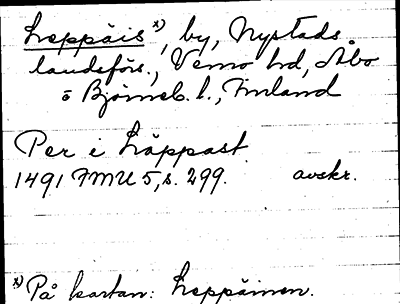 Leppäis *), by, Nystads
landsförs., Vemo hd, Åbo
o Björneb. l., Finland
Per i Läppast
1491 FMU 5, s. 299. avskr.
*) På kartan: Leppäinen.